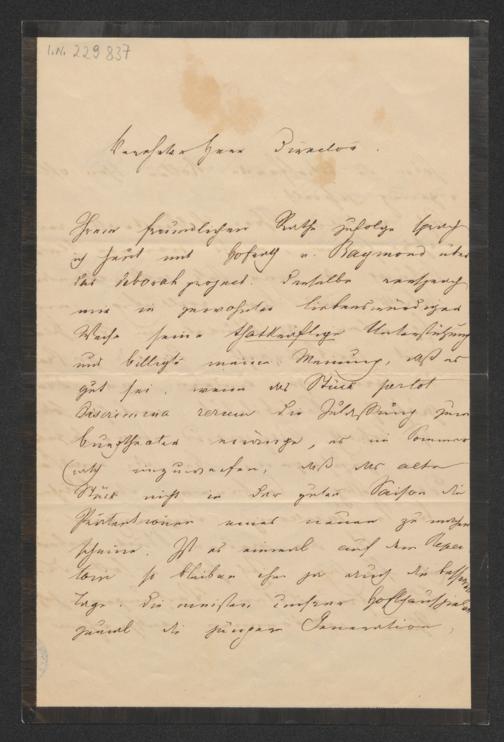 I.N. 229 837
Verehrter Herr Director.
Ihrem freundlichen Rathe zufolge sprach
ich heut mit Hofrath v. Raymond über
das Deborah project. Derselbe versprach
mir in gewohnter liebenswürdiger
Weise seine thatkräftige Unterstützung
und billigte meine Meinung, daß es
gut sei, wenn das Stück per tot
discrimina rerum die Zulassung zum
Burgtheater erränge, es im Sommer
einzuwerfen, daß das alte
Stück nicht in der guten Saison die
Prätentionen eines neuen zu machen
scheine. Ist es einmal auf dem Reper
toir so bleiben ihm ja auch die besseren
Tage. Die meisten unserer Hofschauspieler
zumal die jüngere Generation,